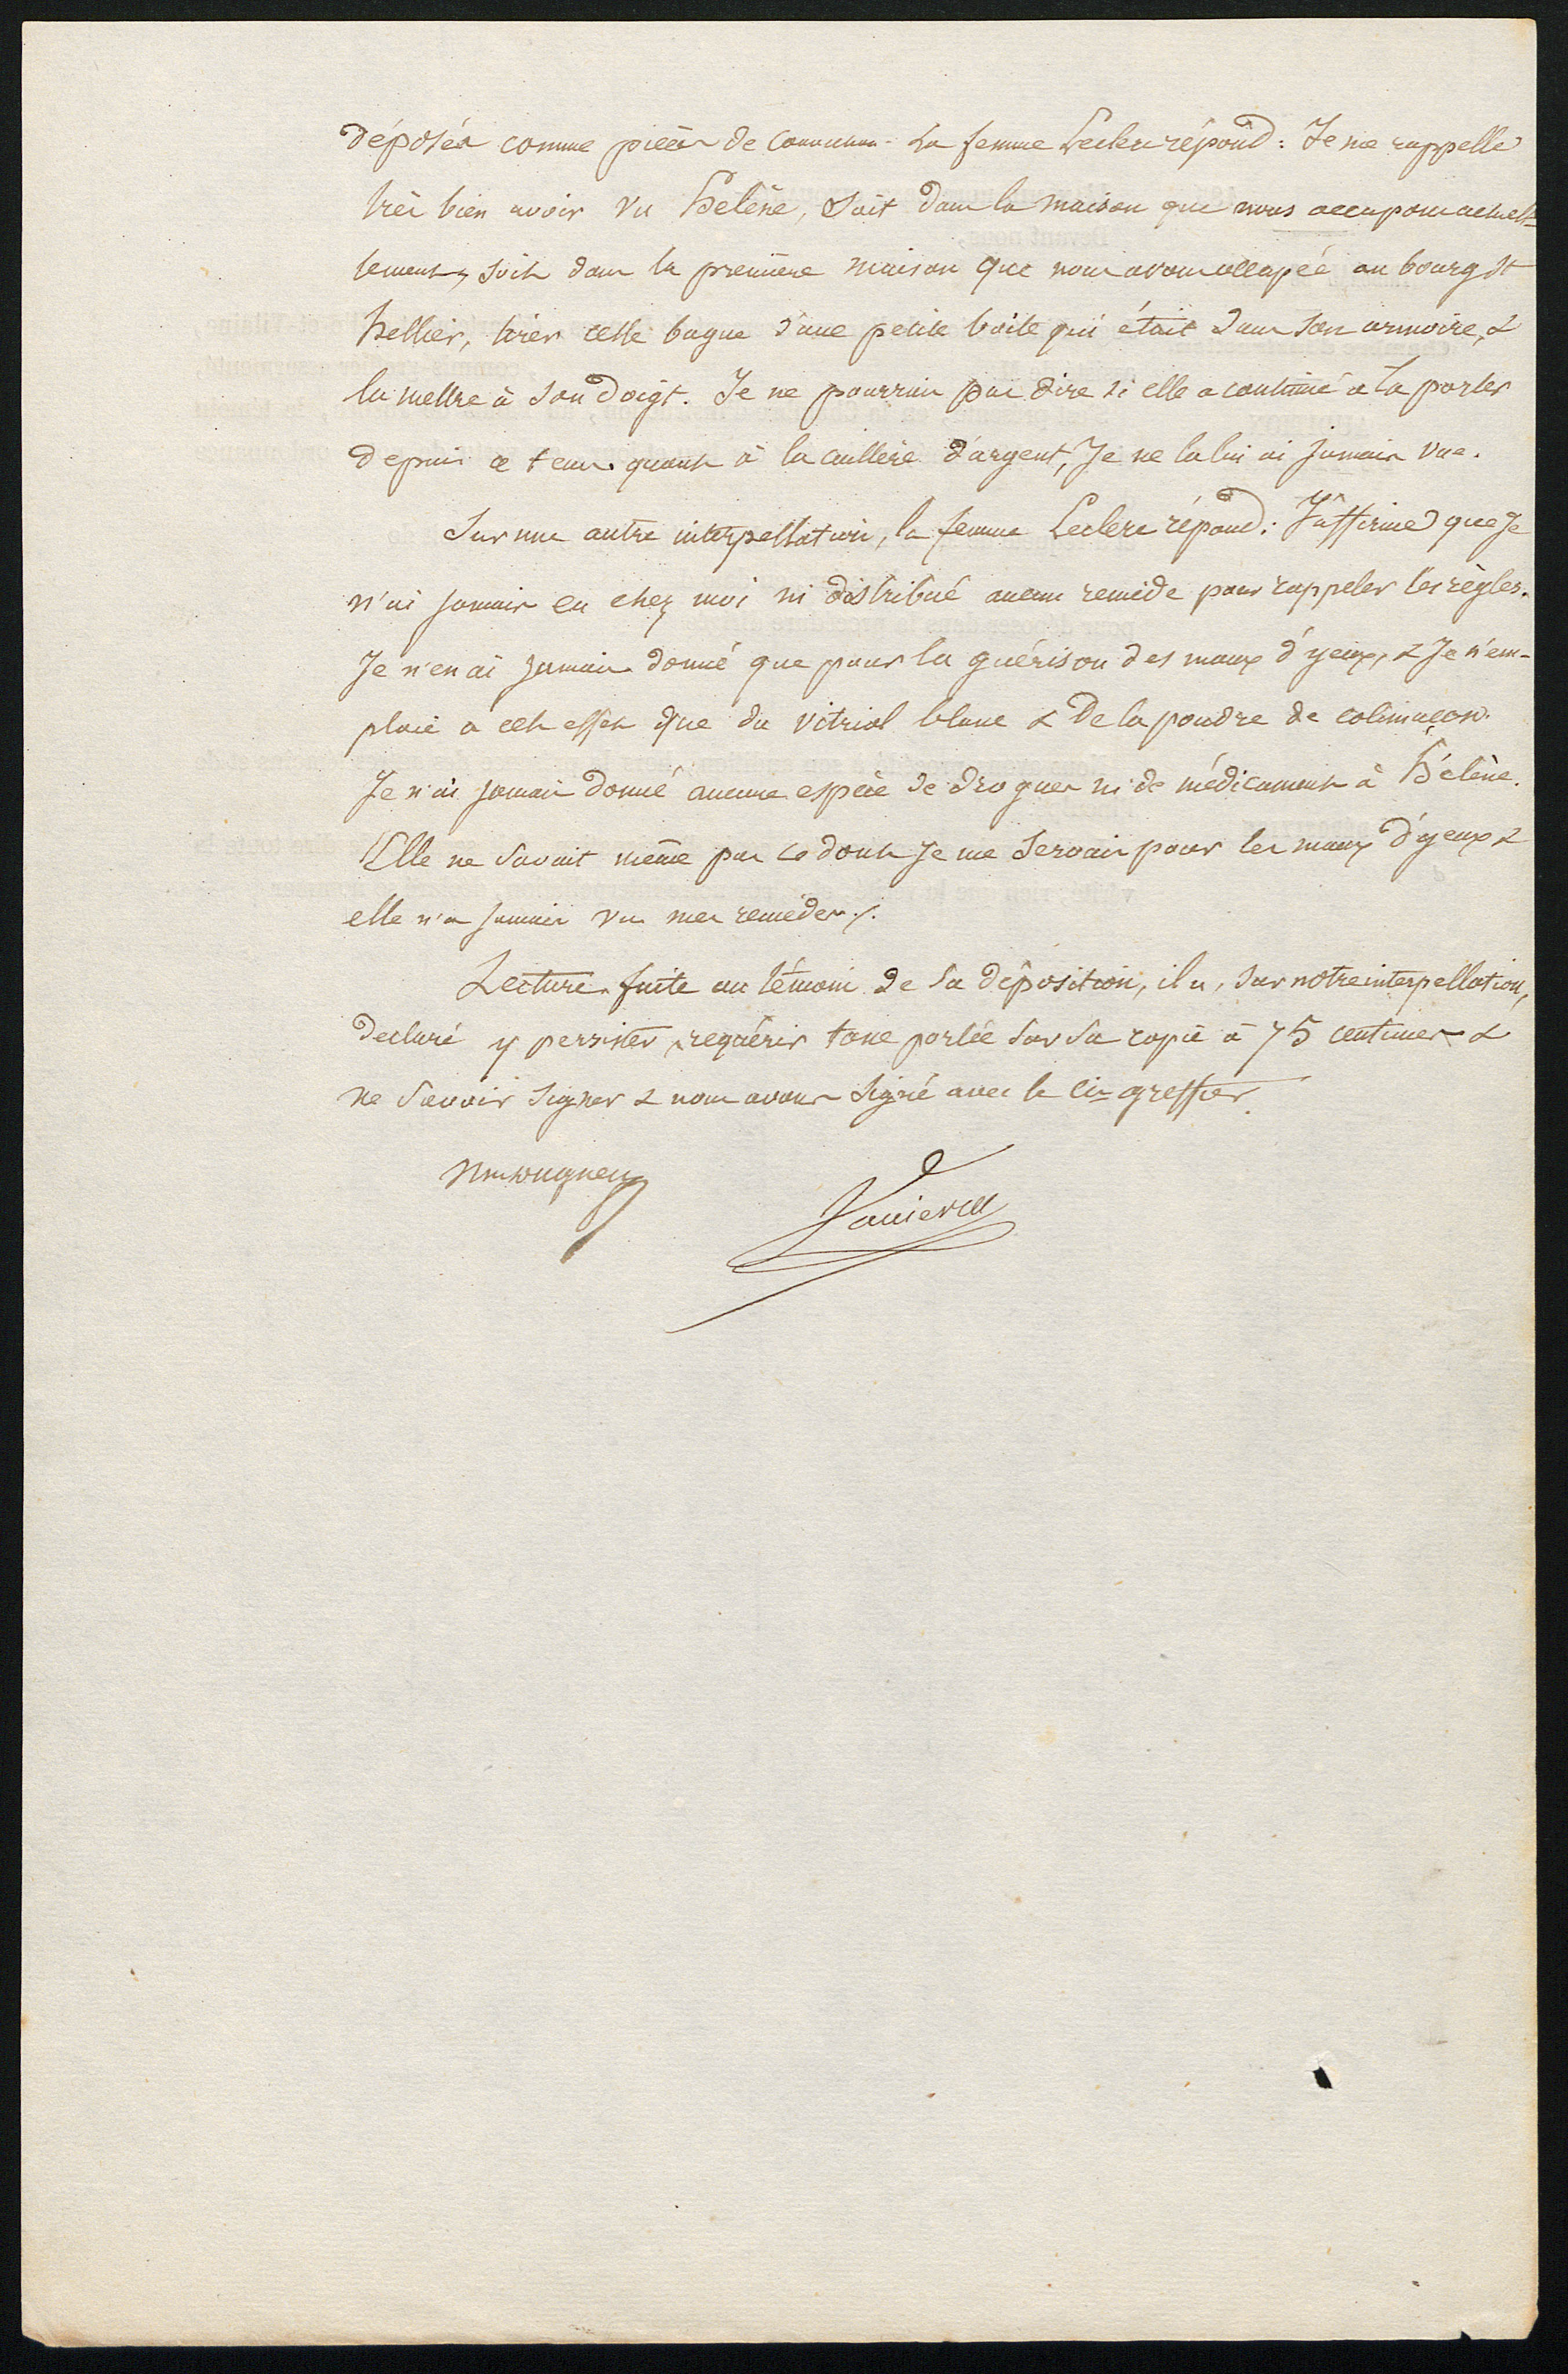 déposées comme pièces de conviction. La femme Leclerc répond : Je me rappelle
très bien avoir vu Hélène, soit dans la maison que nous occupons actuel-
lement, soit dans la première maison que nous avons occupée au bourg St
Hellier, tirer cette bague d'une petite boite qui était dans son armoire, &
la mettre à son doigt. Je ne pourrais pas dire si elle a continué à la porter
depuis ce tems. quant à la cuillère d'argent, Je ne la lui ai jamais vue.
Sur une autre interpellation, la femme Leclerc répond : J'affirme que je
n'ai jamais eu chez moi ni distribué aucun remède pour rappeler les règles.
Je n'en ai jamais donné que pour la guérison des maux d'yeux, & Je n'em-
ploie à cet effet que du vitriol blanc & de la poudre de colimaçon.
Je n'ai jamais donné aucune espèce de drogues ni de médicaments à Hélène.
Elle ne savait même pas ce dont je me servais pour les maux d'yeux &
elle n'a jamais vu mes remèdes./.
Lecture faite au témoin de sa déposition, il a, sur notre interpellation,
declaré y persister, requérir taxe portée sur sa copie à 75 centimes &
ne savoir signer & nous avons signé avec le cis greffier.